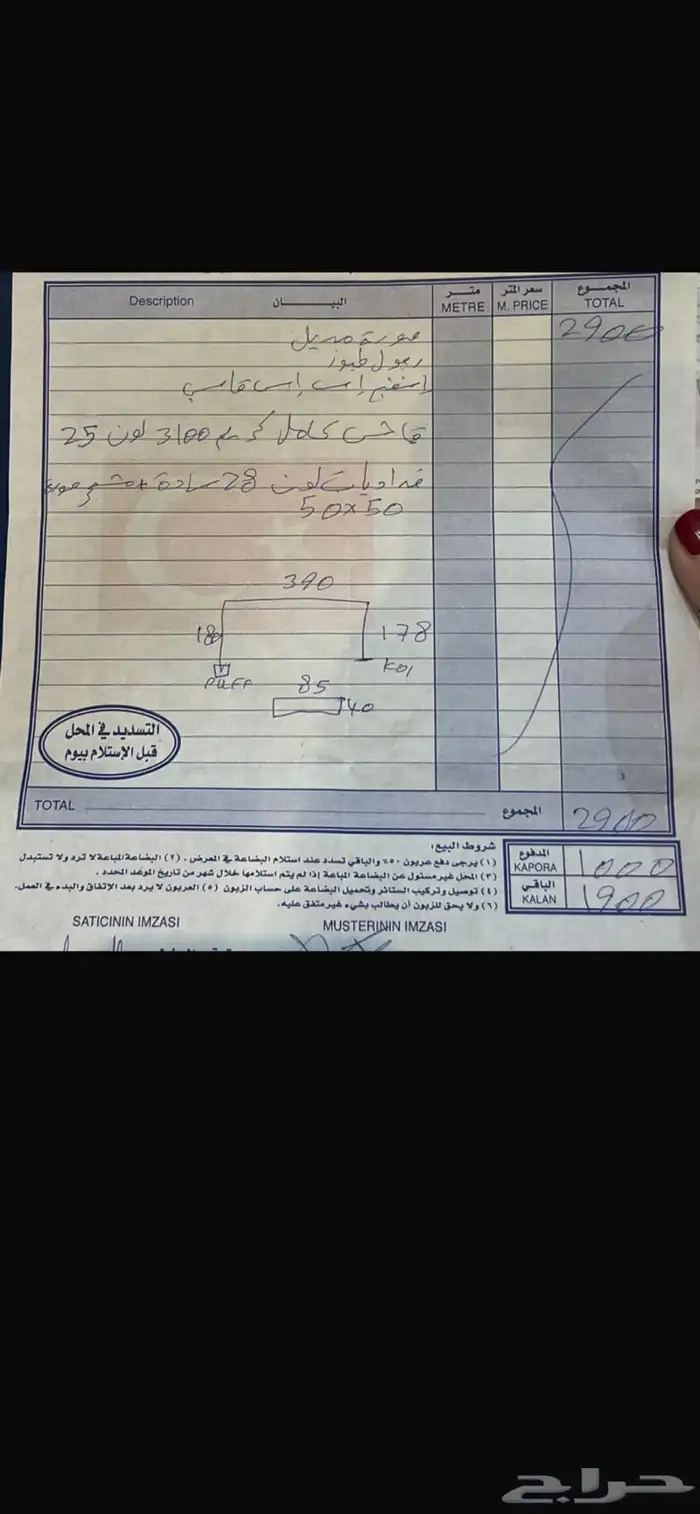 Description البيـــــان متـــر METRE سعر المتر M. PRICE المجمـــوع TOTAL
صورة موديل 2900
رجول
إسفنج إس إس قاسي
قماش كامل كريم 3100 لون 25
خداديات لون 28 سادة +
50x50
390
180 178
PUFF KOL
85
40
التسديد في المحل
قبل الإستلام بيوم
TOTAL المجموع 2900
شروط البيع:
(١) يرجى دفع عربون ٥٠% والباقي تسدد عند استلام البضاعة في المعرض. (٢) البضاعة المباعة لا ترد ولا تستبدل
(٣) المحل غير مسئول عن البضاعة المباعة إذا لم يتم استلامها خلال شهر من تاريخ الموعد المحدد.
(٤) توصيل وتركيب الستائر وتحميل البضاعة على حساب الزبون (٥) العربون لا يرد بعد الإتفاق والبدء في العمل.
(٦) ولا يحق للزبون أن يطالب بشيء غير متفق عليه.
المدفوع
KAPORA 1000
الباقي
KALAN 1900
SATICININ IMZASI MUSTERININ IMZASI
حراج